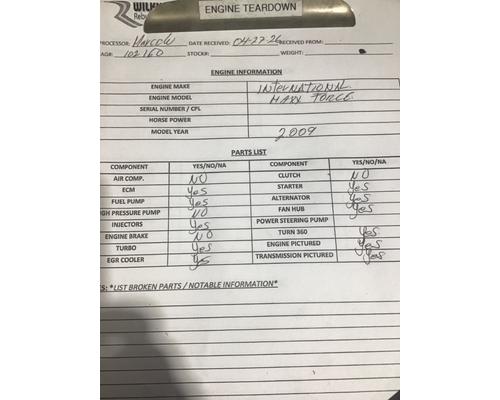 WILK
Rebu
ENGINE TEARDOWN
PROCESSOR: MARCOW DATE RECEIVED: 04-27-26 RECEIVED FROM:
AG#: 102160 STOCK#: WEIGHT:
ENGINE INFORMATION
ENGINE MAKE INTERNATIONAL
ENGINE MODEL MAXX FORCE
SERIAL NUMBER / CPL
HORSE POWER
MODEL YEAR 2009
PARTS LIST
COMPONENT YES/NO/NA COMPONENT YES/NO/NA
AIR COMP. NO CLUTCH NO
ECM Yes STARTER Yes
FUEL PUMP Yes ALTERNATOR Yes
GH PRESSURE PUMP NO FAN HUB Yes
INJECTORS Yes POWER STEERING PUMP
ENGINE BRAKE NO TURN 360 Yes
TURBO Yes ENGINE PICTURED Yes
EGR COOLER Yes TRANSMISSION PICTURED Yes
S: *LIST BROKEN PARTS / NOTABLE INFORMATION*